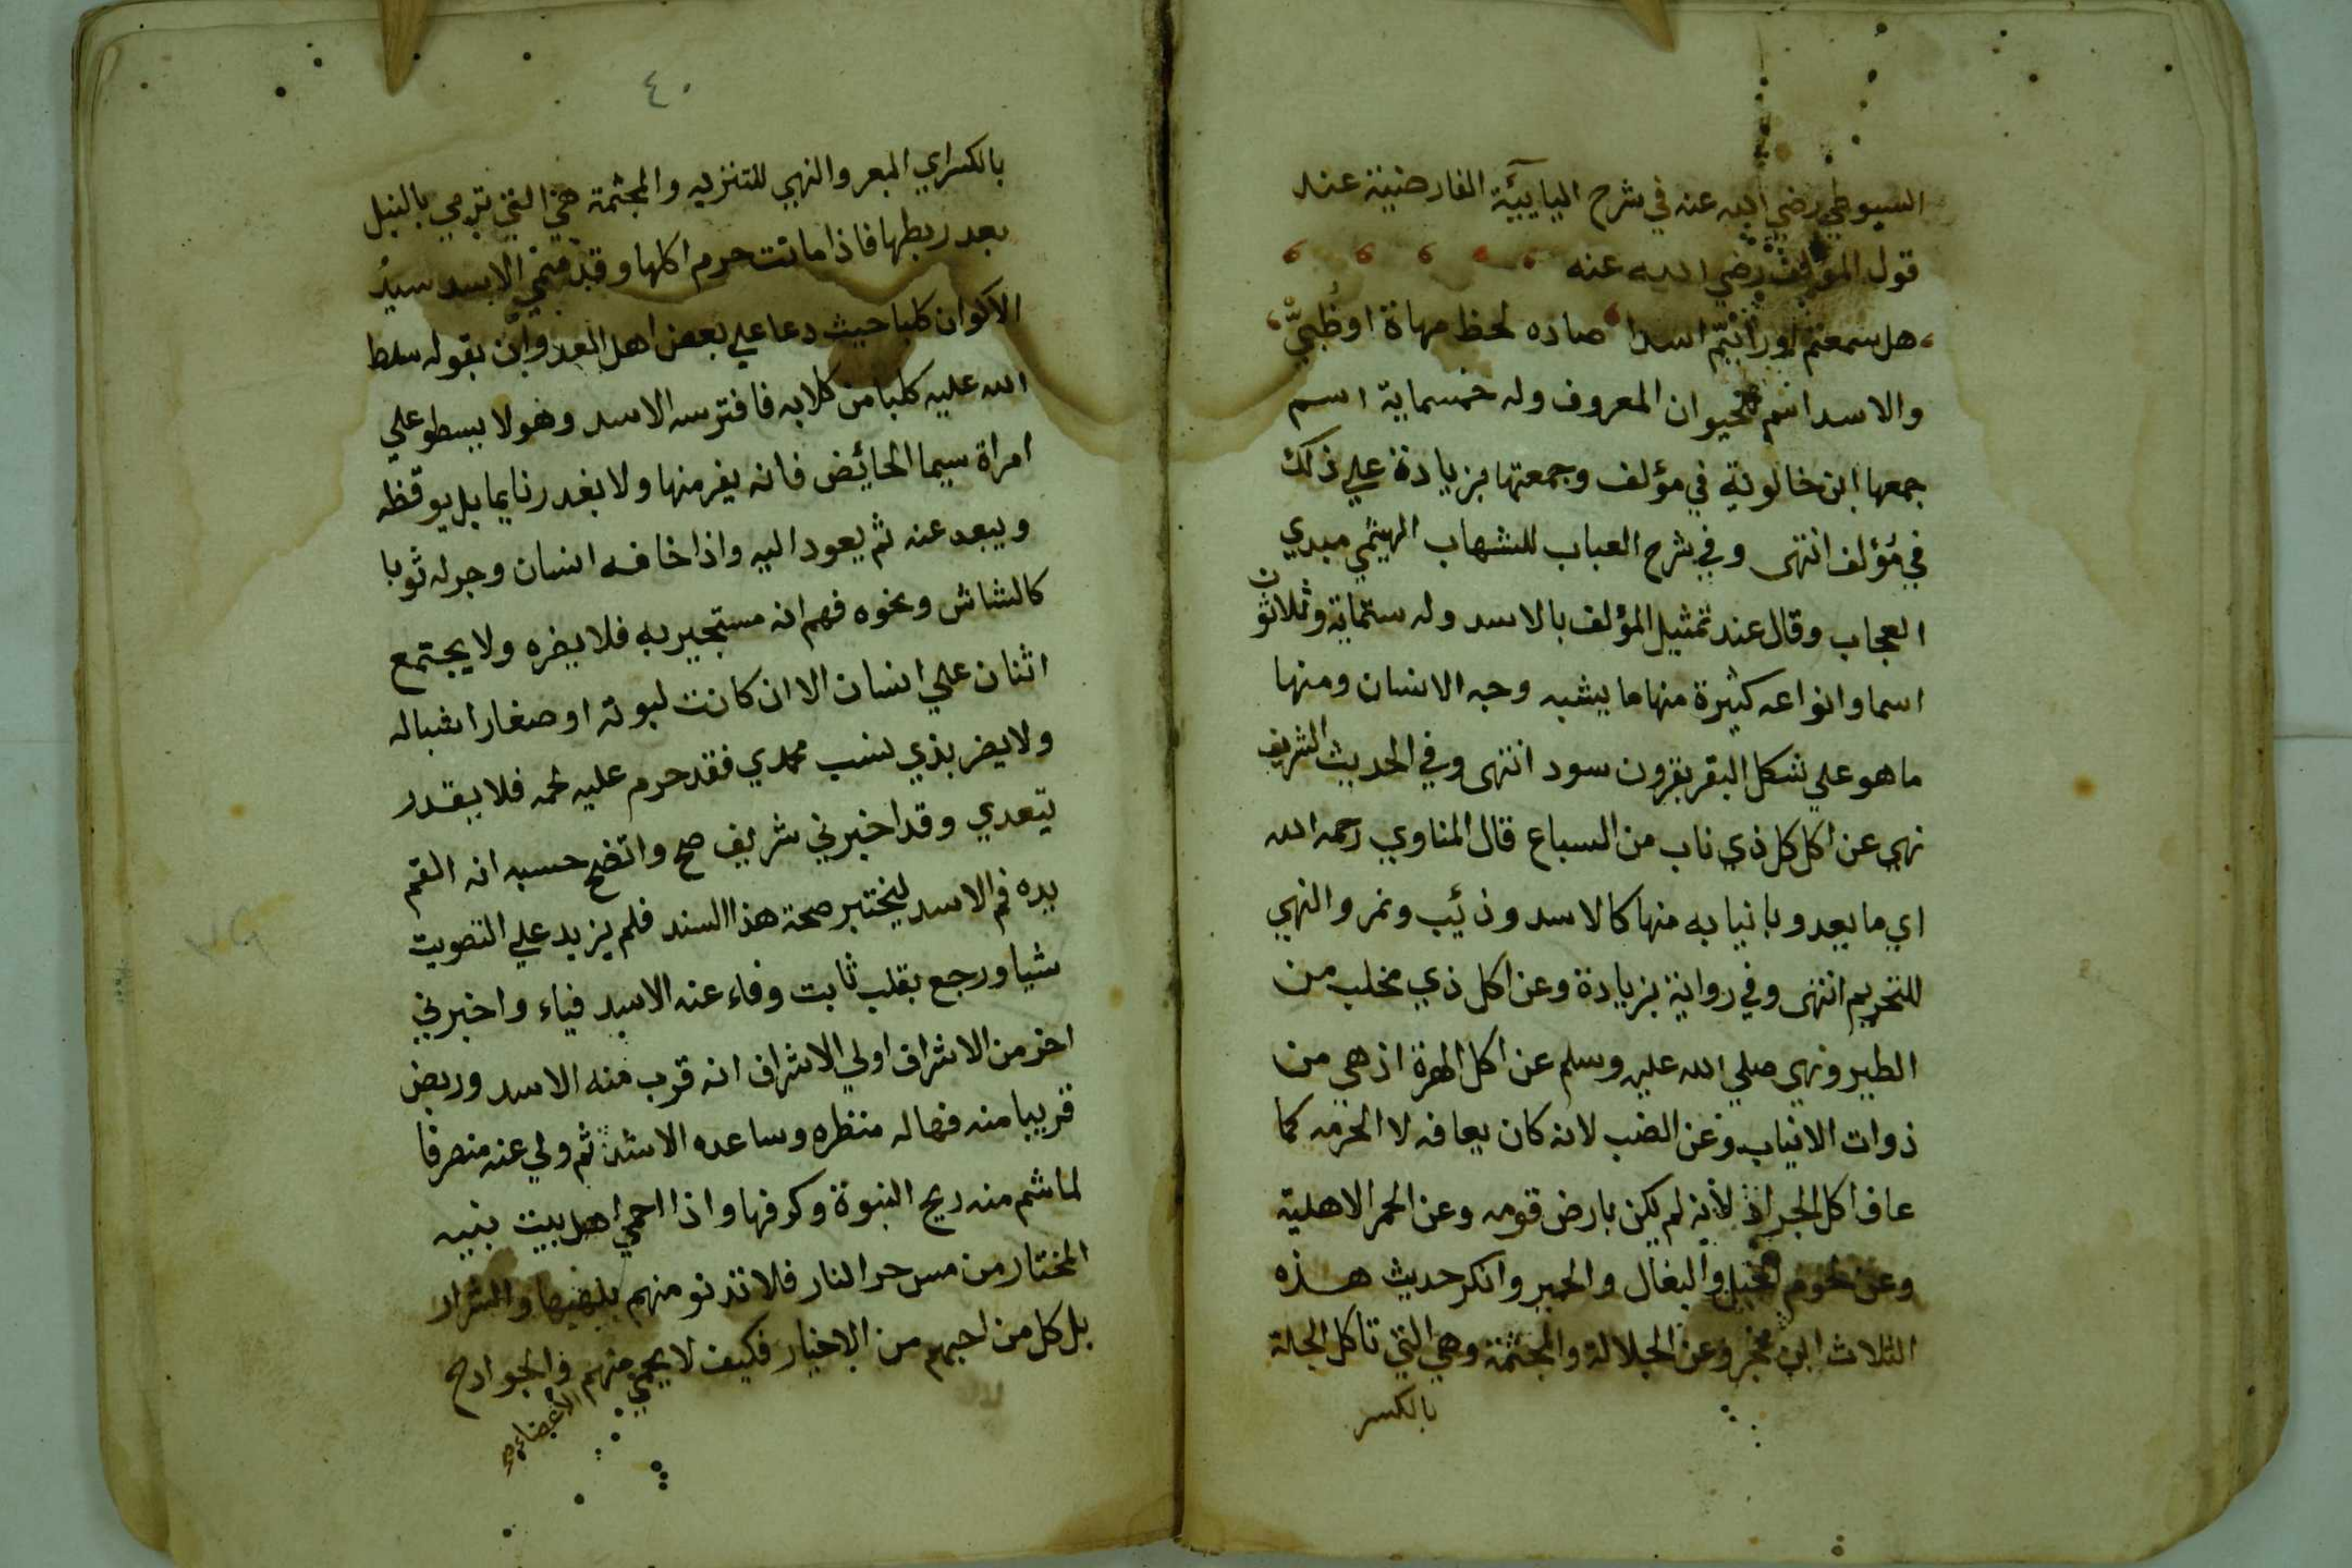 السيوطي رضي الله عنه في شرح اليائية الفارضية عند
قول المؤلف رضي الله عنه
هل سمعتم او رأيتم اسدا صاده لحظ مهاة او ظبيّ
والاسد اسم للحيوان المعروف وله خمسماية اسم
جمعها ابن خالوية في مؤلف وجمعتها بزيادة علي ذلك
في مؤلف انتهى وفي شرح العباب للشهاب الهيثمي مبدي
العجاب وقال عند تمثيل المؤلف بالاسد وله ستماية وثلاثون
اسما وانواعه كثيرة منها ما يشبه وجه الانسان ومنها
ما هو علي شكل البقر بقرون سود انتهى وفي الحديث الشريف
نهي عن اكل كل ذي ناب من السباع قال المناوي رحمه الله
اي ما يعدو بانيابه منها كالاسد وذئيب ونمر والنهي
للتحريم انتهى وفي رواية بزيادة وعن اكل ذي مخلب من
الطير ونهي صلي الله عليه وسلم عن اكل الهرة اذ هي من
ذوات الانياب وعن الضب لانه كان يعافه لا لحرمه كما
عاف اكل الجراد لأنه لم يكن بارض قومه وعن الحمر الاهلية
وعن لحوم الخيل والبغال والحمير وانكر حديث هذه
الثلاث ابن حجر وعن الجلالة والمجثمة وهي التي تاكل الجلة
بالكسر
٤٠
بالكسر اي البعر والنهي للتنزيه والمجثمة هي التي ترمي بالنبل
بعد ربطها فاذا ماتت حرم اكلها وقد سمي الاسد سيدُ
الاكوان كلبا حيث دعا علي بعض اهل العدوان بقوله سلط
الله عليه كلبا من كلابه فافترسه الاسد وهو لا يسطو علي
امراة سيما الحائيض فانه يفر منها ولا يغدر نايما بل يوقظه
ويبعد عنه ثم يعود اليه واذا خافه انسان وجر له ثوبا
كالشاش ونحوه فهم انه مستجير به فلا يضره ولا يجتمع
اثنان علي انسان الا ان كانت لبوته او صغارا اشباله
ولا يضر بذي نسب محمدي فقد حرم عليه لحمه فلا يقدر
يتعدي وقد اخبرني شريف صح واتضح حسبه انه القم
يده فم الاسد ليختبر صحة هذا السند فلم يزيد علي التصويت
شيا ورجع بقلب ثابت وفاء عنه الاسد فياء واخبرني
اخر من الاشراف اولي الاشراف انه قرب منه الاسد وربض
قريبا منه فهاله منظره وساعده الاشد ثم ولي عنه منصرفا
لما شم منه ريح النبوة وكر فها واذا احمي اهل بيت نبيه
المختار من مس حر النار فلا تدنو منهم بلهيبها والشرار
بل كل من احبهم من الاخيار فكيف لا يحمي منهم الجوارح
الاعضاء صح